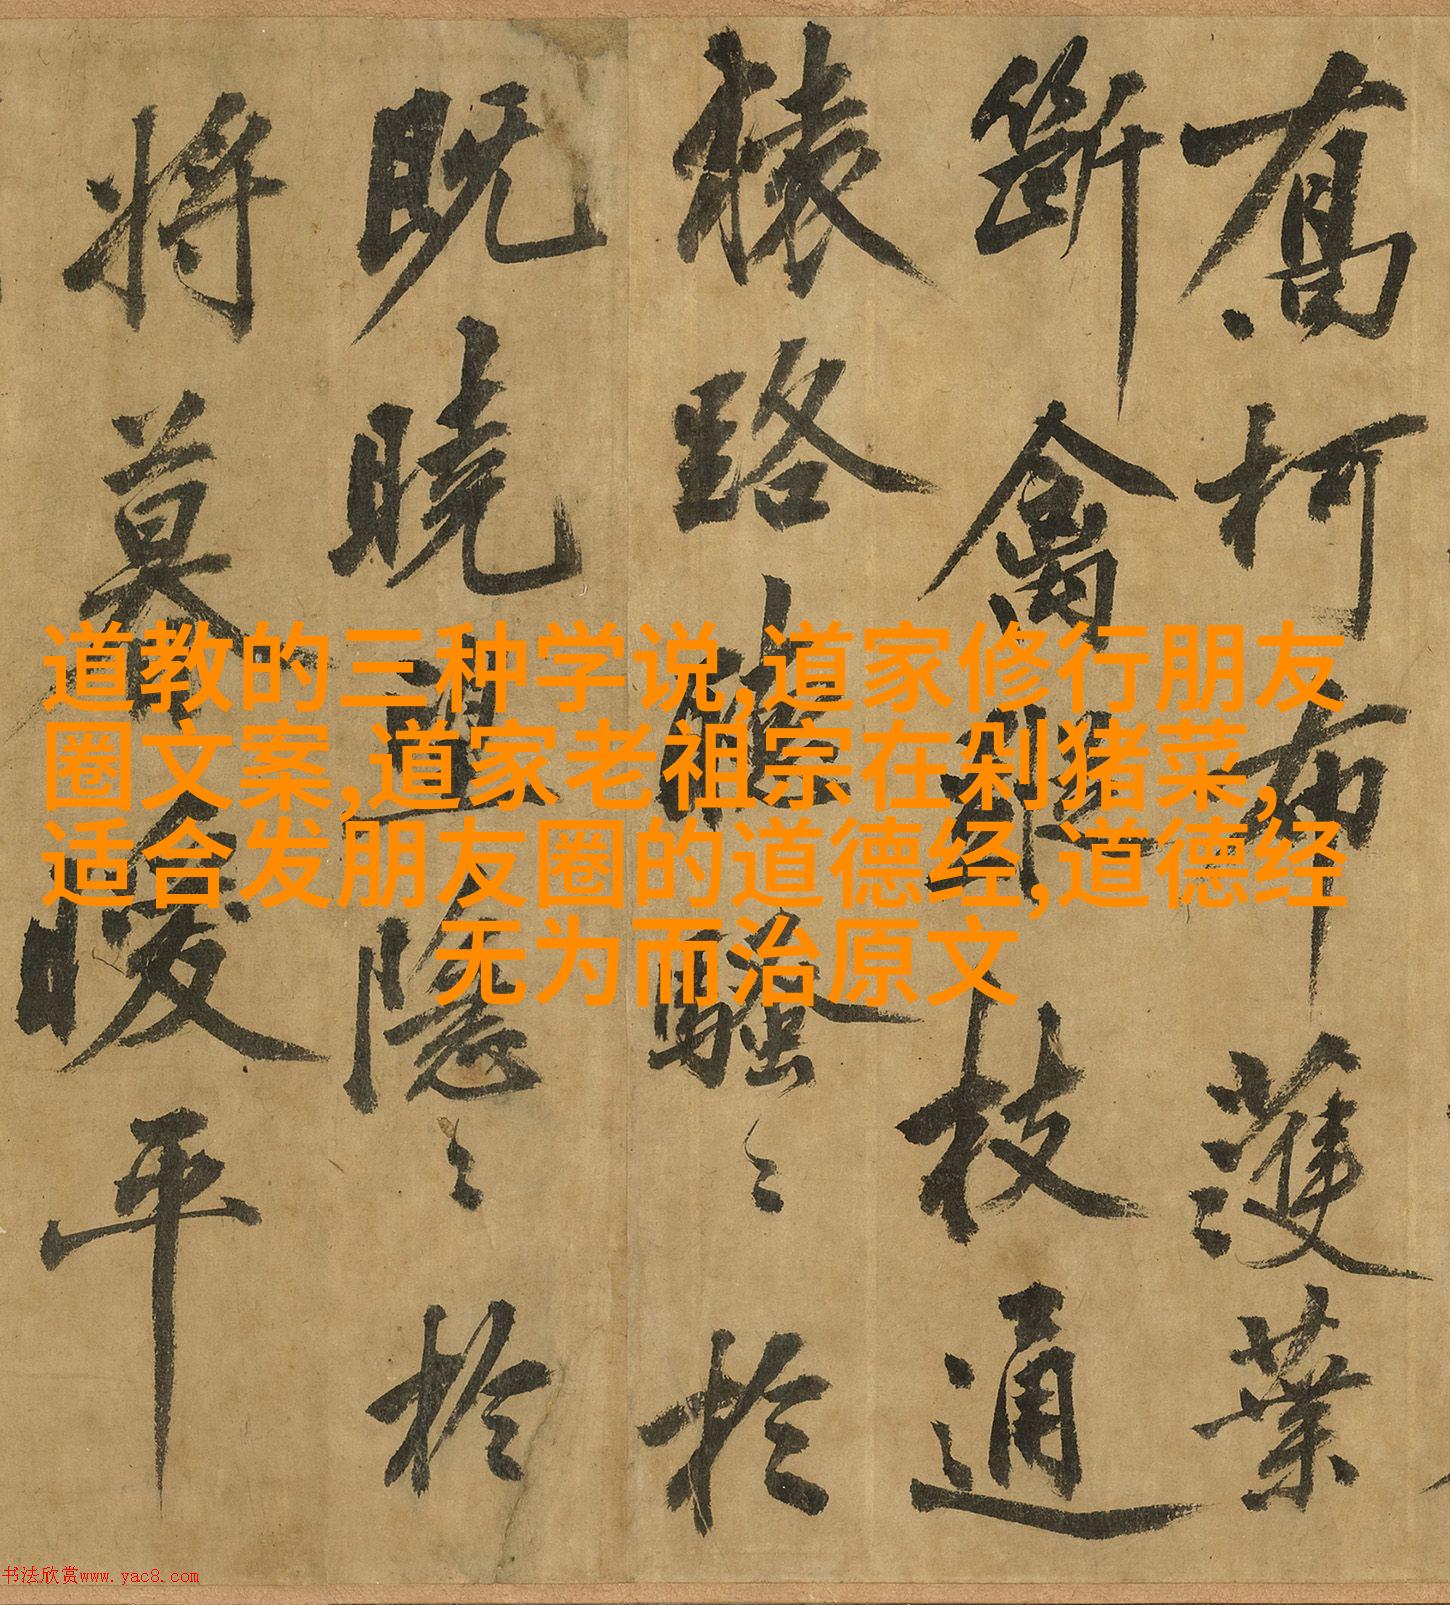 道教的三种学说,道家修行朋友
圈文案,道家老祖宗在剁猪菜,
适合发朋友圈的道德经,道德经
无为而治原文
喬柯布護葉
斷禽雖枝通
猿路騷〻於
既曉隱〻於
將暮曖平
书法欣赏www.yac8.com